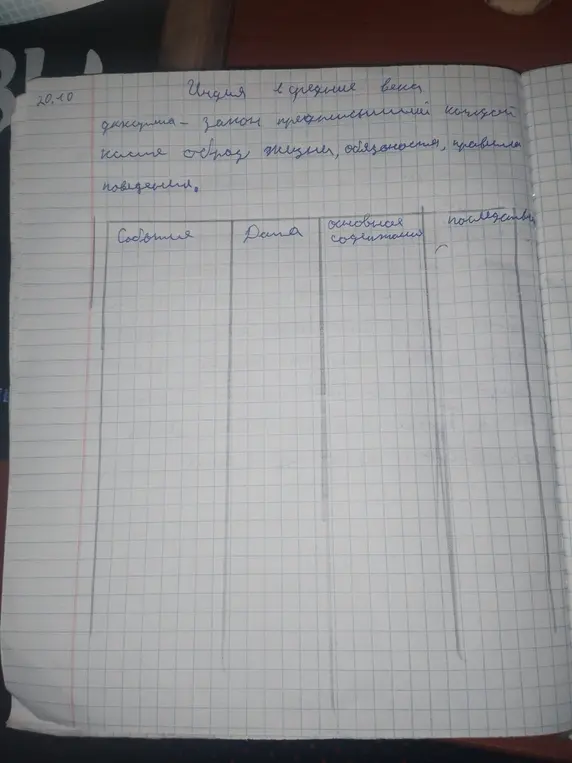 20.10
Индия в средние века
дхарма - закон предписывший каждой
касте образ жизни, обязаности, правила
поведения.
События Дата основная последствия
содержания